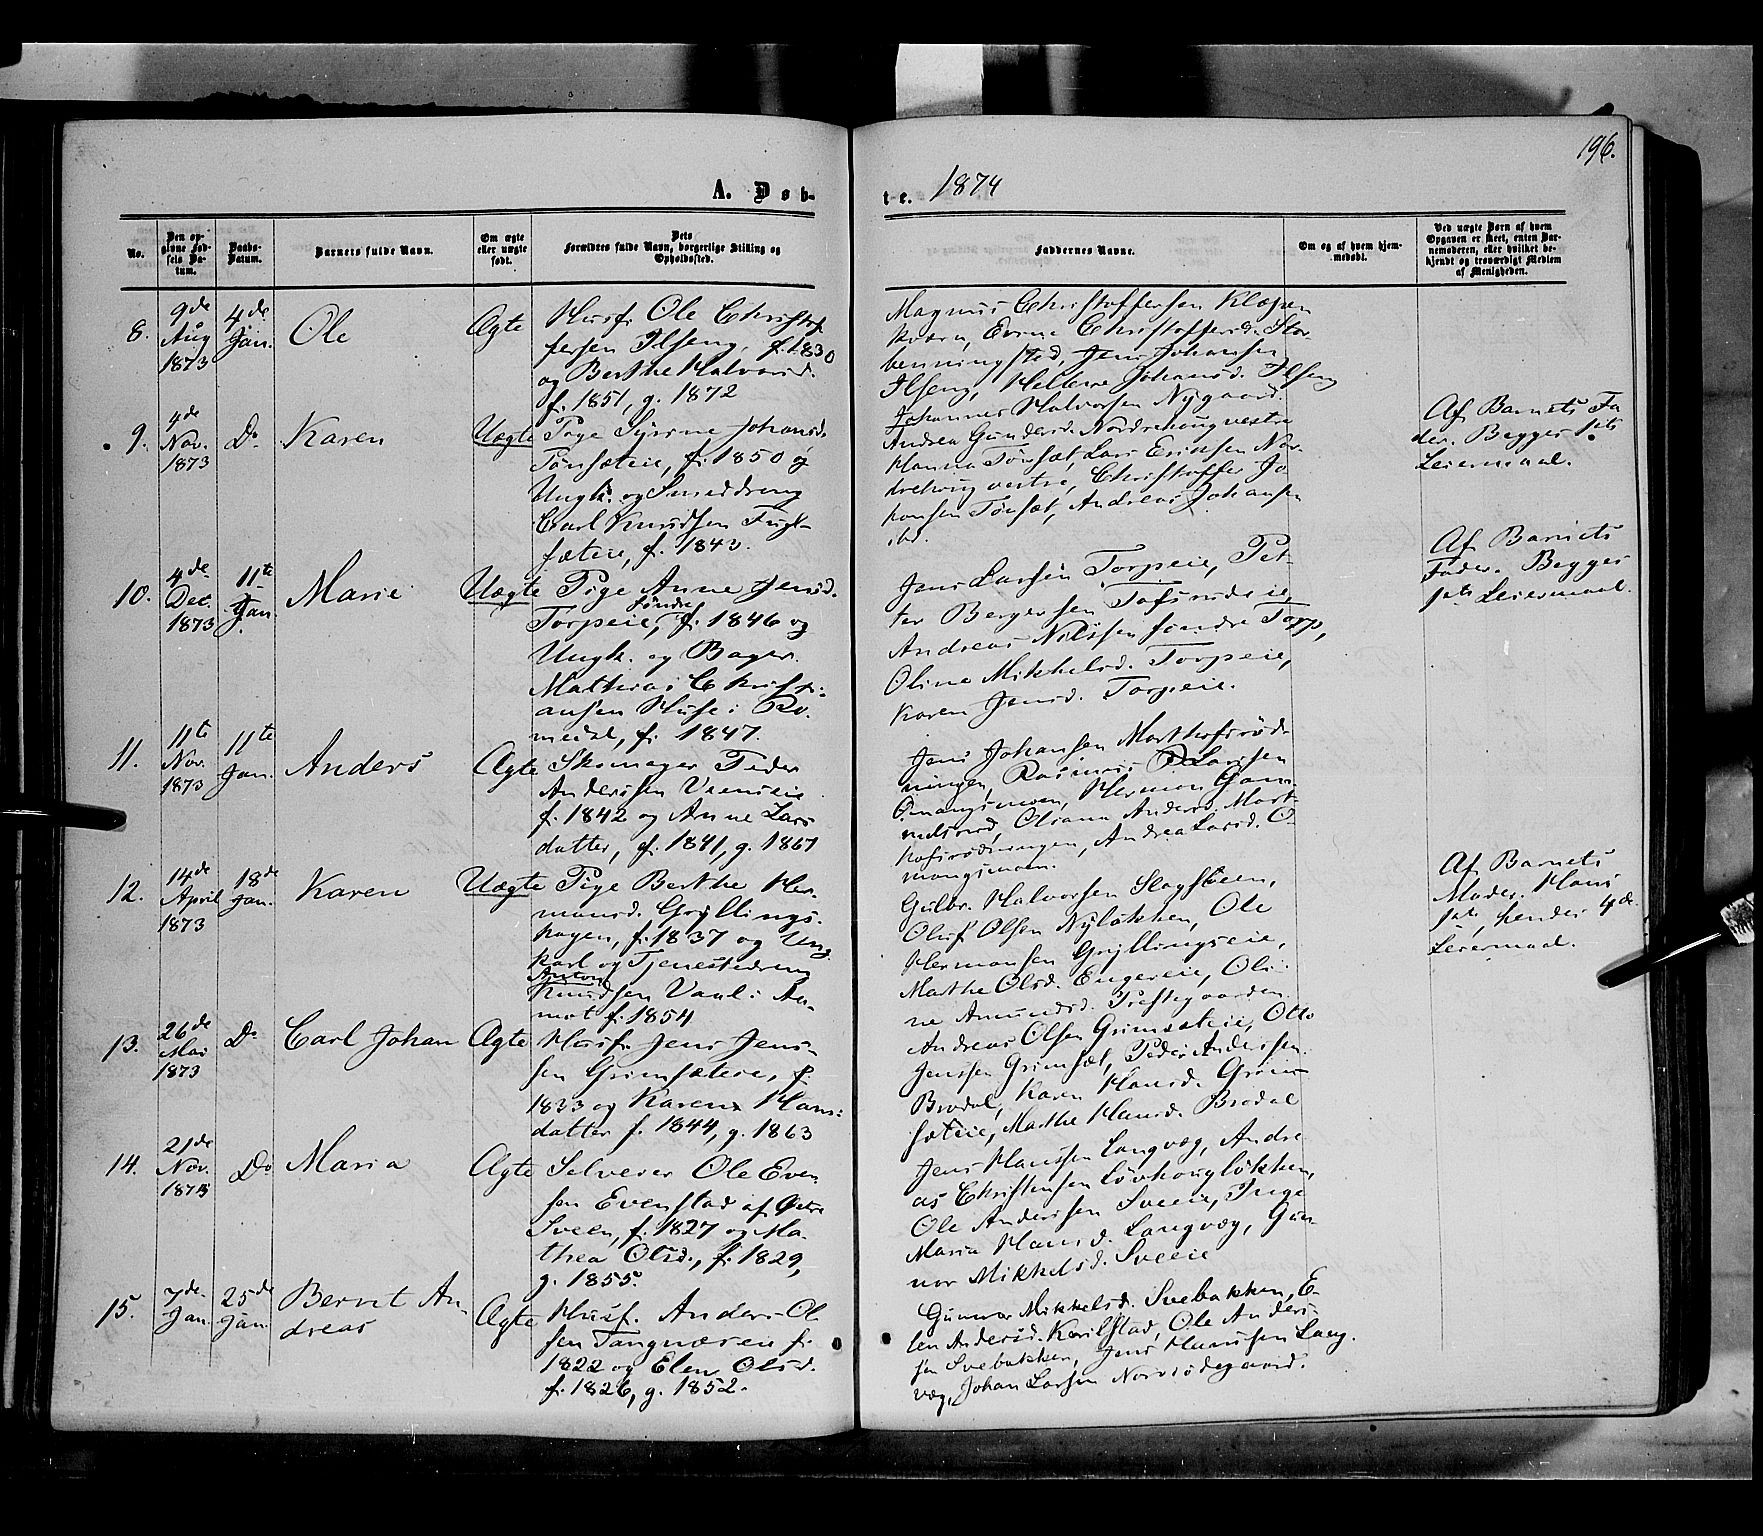 196.
A. Døb-
t-e. 1874
No.
Den op-
givne Fød-
sels Da-
tum.
Daabs-
Datum.
Barnets fulde Navn.
Om ægte
eller uægte
født.
Dets
Forældres fulde Navn, borgerlige Stilling og
Opholdssted.
Faddernes Navne.
Om og af hvem hjem-
medøbt.
Ved uægte Børn af hvem
Opgaven er skeet, enten Bar-
nemoderen, eller hvilket be-
kjendt og troværdigt Medlem
af Menigheden.
8.
9de
Aug
1873
4de
Jan.
Ole
Ægte
Husf. Ole Christof-
fersen Ilseng, f. 1830
og Berthe Halvorsd.
f. 1851, g. 1872
Magnus Christoffersen Klæpen
kværn, Evine Christoffersd. Stor-
benningstad, Jens Johansen
Ilseng, Hellene Johansd. Ilseng
Johannes Halvorsen Nygaard.
9.
4de
Nov.
1873
Do
Karen
Uægte
Pige Syrine Johansd.
Tønsæteie, f. 1850 og
Ungk. og Smeddreng
Carl Knudsen Fugl-
sæteie, f. 1843.
Andrea Gundersd. Nordrehoug vestre
Hanna Tønsæt, Lars Eriksen Nor-
drehoug vestre, Christoffer Jo
hansen Tønsæt, Andreas Johansen
ibd.
Af Barnets Fa
der. Begges 1ste
Leiermaal.
10.
4de
Dec.
1873
11te
Jan.
Marie
Uægte
Pige Anne Jensd.
søndre
Torpeie, f. 1846 og
Ungk. og Bager
Mathias Christi-
ansen Huse i Ro-
medal, f. 1847.
Jens Larsen Torpeie, Pet-
ter Bergersen Tofsrudeie,
Andreas Nilssen søndre Torp,
Oline Mikkelsd. Torpeie,
Karen Jensd. Torpeie.
Af Barnets
Fader. Begges
1ste Leiermaal.
11.
11te
Nov.
1873
11te
Jan.
Anders
Ægte
Skomager Peder
Anderssen Vienseie
f. 1842 og Anne Lars
datter, f. 1841, g. 1867
Jens Johansen Marthofsrød-
ningen, Rasmus Larssen
Omangsmoen, Herman Gam
melsrud, Oliana Andersd. Mart-
hofsrødningen, Andrea Larsd. O-
mangsmoen.
12.
14de
April
1873
18de
Jan.
Karen
Uægte
Pige Berthe Her-
mansd. Gryllings-
hagen, f. 1837 og Ung
karl og Tjenestedreng
Anton
Knudsen Vaal i Aa-
mot f. 1854
Gulbr. Halvorsen Slagsveen,
Oluf Olsen Nyløkken, Ole
Hermansen Gryllingseie,
Marthe Olsd. Engereie, Oli-
ne Amundsd. Prestegaarden.
Af Barnets
Moder. Hans
1ste, hendes 4de
Leiermaal.
13.
26de
Mai
1873
Do
Carl Johan
Ægte
Husf. Jens Jens-
sen Grimsæteie, f.
1833 og Karen Hans-
datter f. 1844, g. 1863
Andreas Olsen Grimsæteie, Otto
Jenssen Grimsæt, Peder Anderssen
Brodal, Karen Hansd. Grim-
sæteie, Marthe Hansd. Brodal
14.
21de
Nov.
1873
Do
Maria
Ægte
Selveier Ole Even
sen Evenstad af Østre
Sveen, f. 1827 og Ma-
thea Olsd., f. 1829,
g. 1855.
Jens Hanssen Langvæg, Andre
as Christensen Løvhougløkken,
Ole Anderssen Sveeie, Pige
Maria Hansd. Langvæg, Gun-
nor Mikkelsd. Sveeie
15.
7de
Jan.
25de
Jan.
Bernt An-
dreas
Ægte
Husf. Anders Ol-
sen Tangnæseie f.
1822 og Elen Olsd.
f. 1826, g. 1852.
Gunnor Mikkelsd. Svebakken, E-
len Andersd. Karilstad, Ole Anders-
sen Svebakken, Jens Hanssen Lang-
væg, Johan Larsen Norsødegaard.